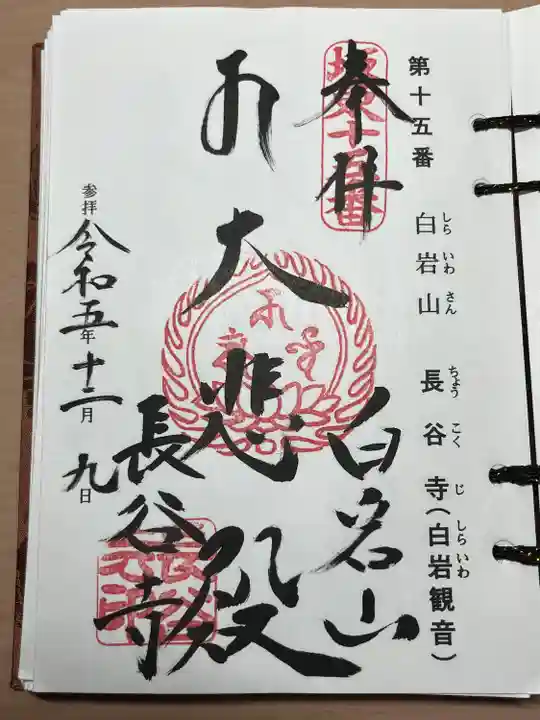 第十五番 白岩山 長谷寺(白岩観音)
しら いわ さん ちょう こく じ しら いわ
奉拝
白岩山
大悲殿
長谷寺
坂東十五番
参拝 令和五年十二月九日